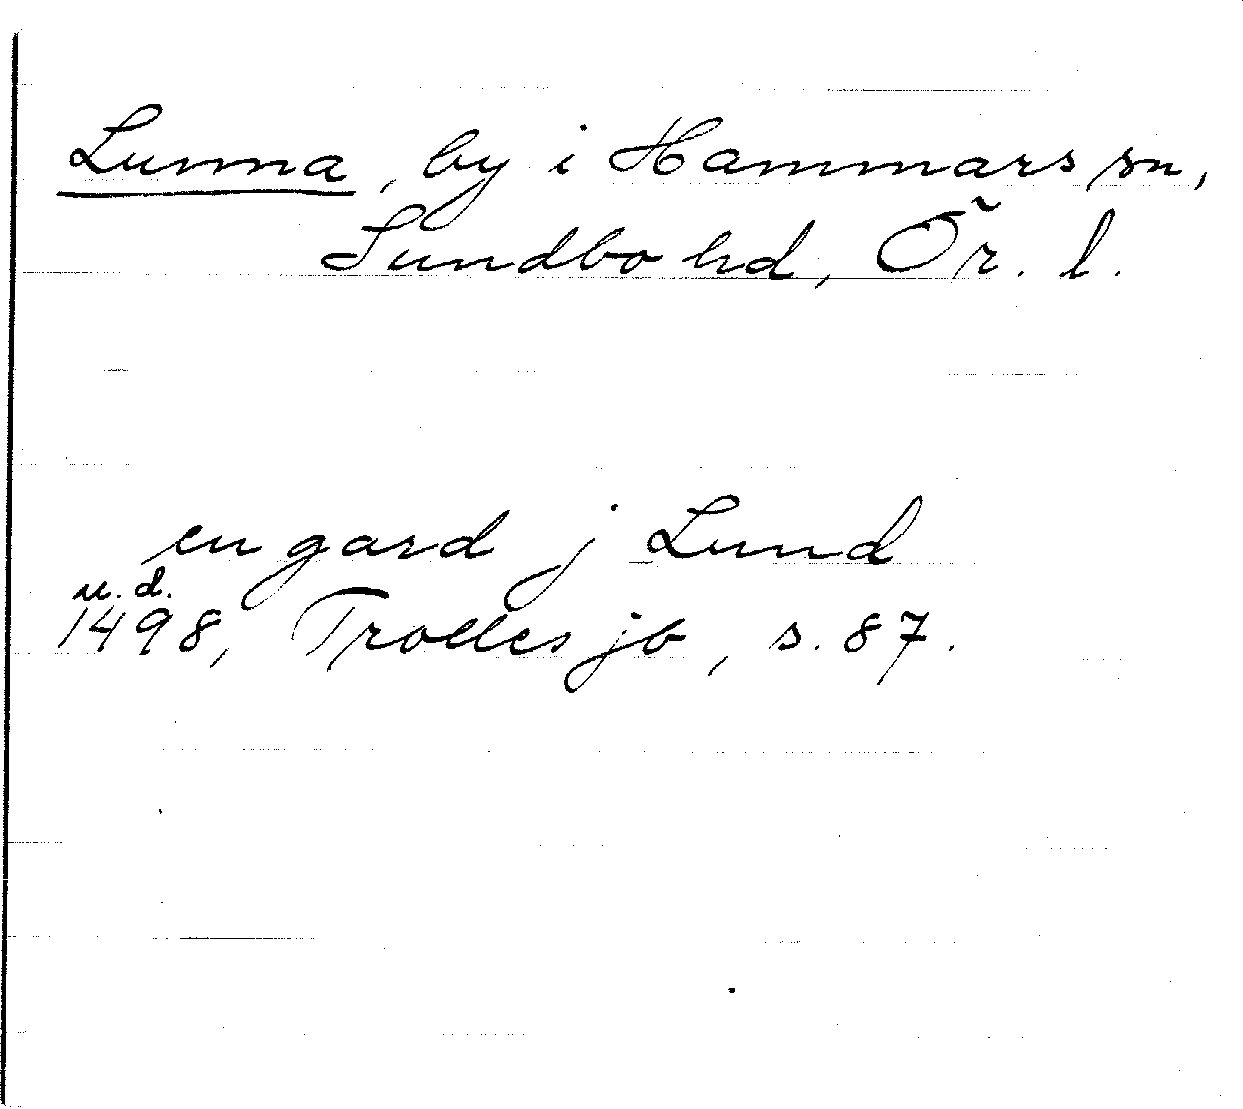 Lunna, by i Hammars sn,
Sundbo hd, Ör. l.
en gard j Lund
u. d.
1498, Trolles jb, s. 87.